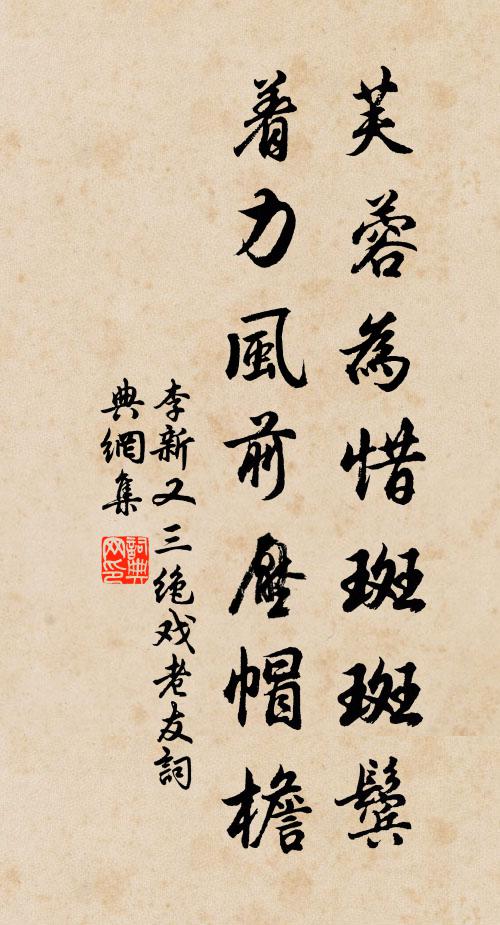 芙蓉為惜斑斑鬢
着力風前壓帽檐
李新又三绝戏老友詞
典網集
詞典網印